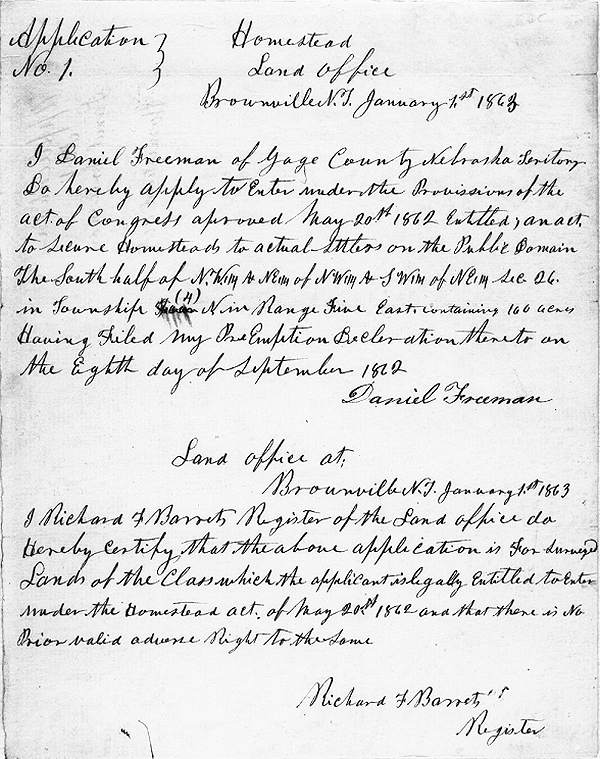 Application } Homestead
No. 1. } Land Office
Brownville N.T. January 1.st 1863
I Daniel Freeman of Gage County Nebraska Teritory
Do hereby apply to Enter under the Provisions of the
act of Congress aproved May 20st 1862 Entitled, an act
to Secure Homesteads to actual Settlers on the Public Domain
The South half of N.W¼ & NE¼ of NW¼ & SW¼ of NE¼ Sec. 26.
in Township (4) N in Range Five East containing 160 acres
Having Filed my PreEmption Decleration thereto on
the Eighth day of September 1862
Daniel Freeman
Land office at;
Brownville N.T. January 1.st 1863
I Richard F Barrett Register of the Land office do
Hereby Certify that the above application is For Surveyed
Lands of the Class which the applicant is legally Entitled to Enter
under the Homestead act of May 20st 1862 and that there is No
Prior valid adverse Right to the Same
Richard F Barrett
Register